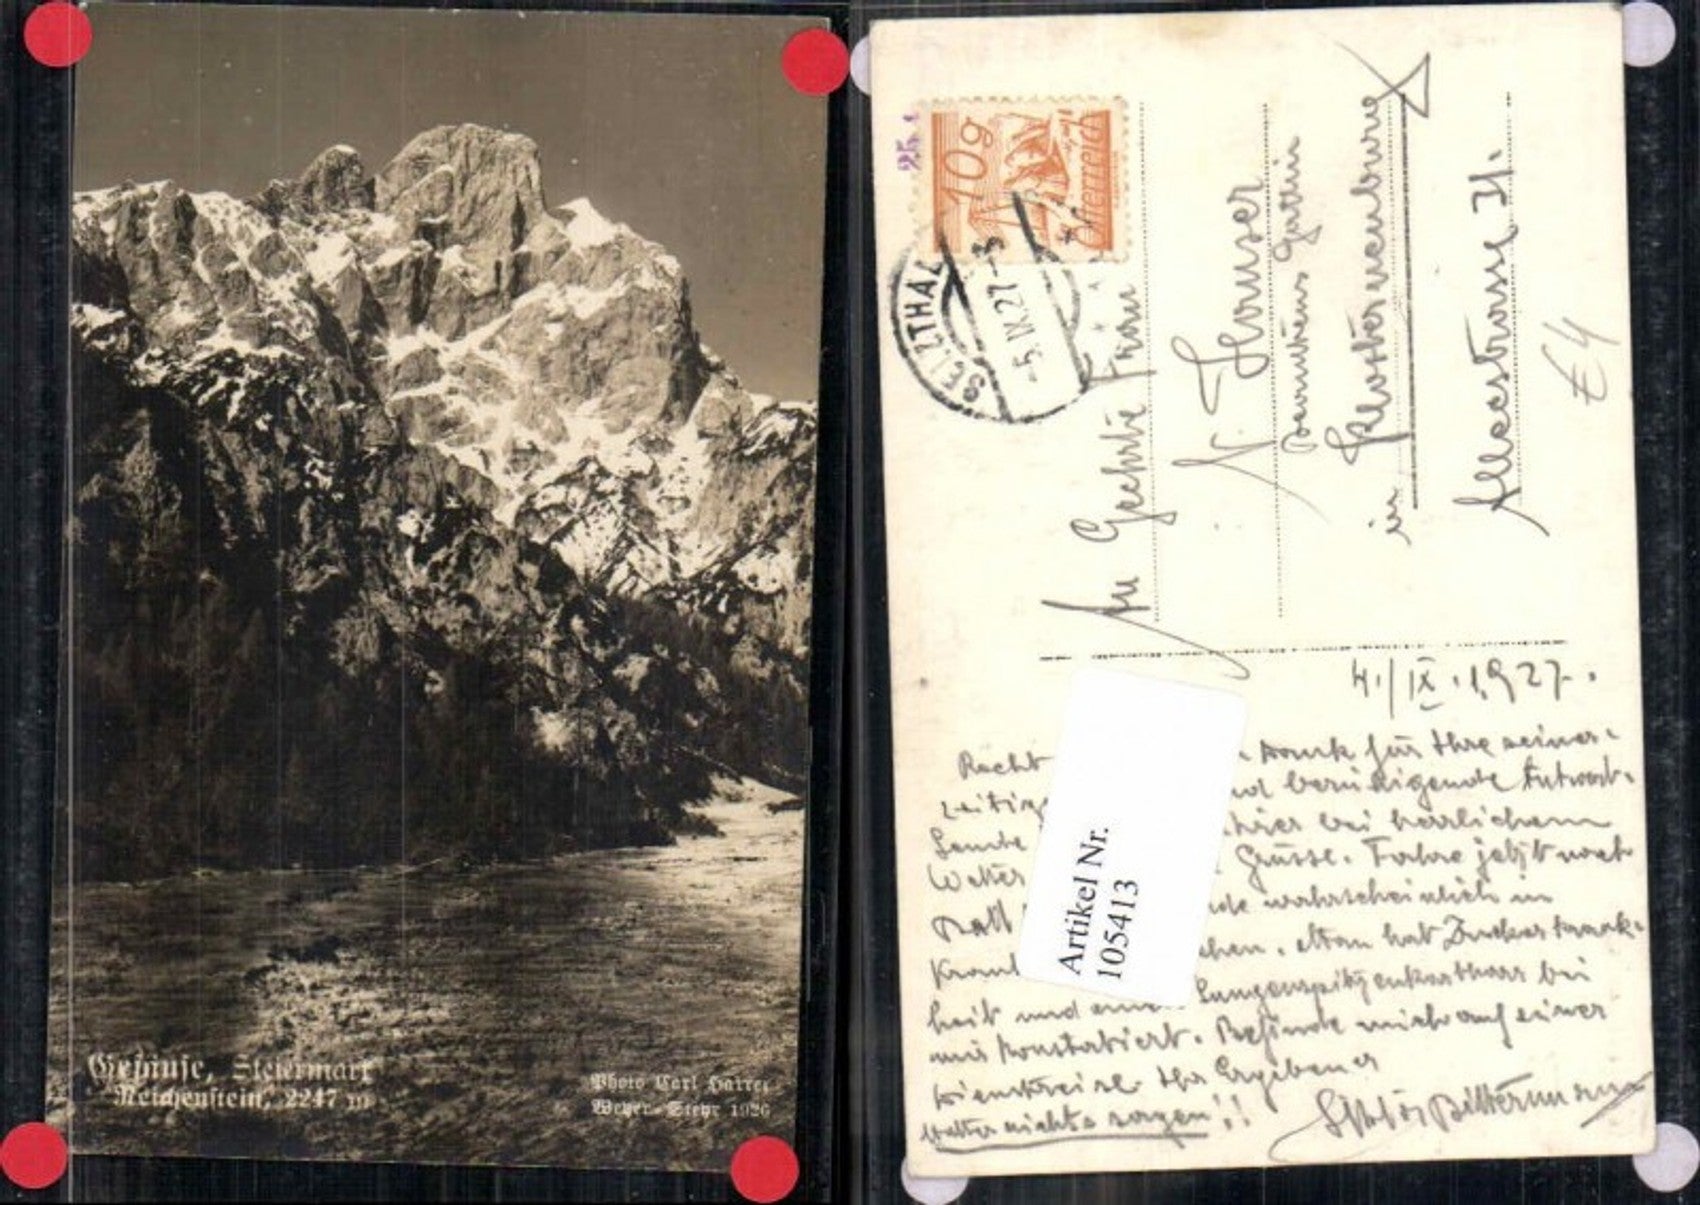 Gesäuse, Steiermark
Reichenstein, 2247 m
Photo Carl Harrer
Weyer-Steyr 1926
25.1
10g
Österreich
SELZTHAL
-5.IX.27-8
An Geehrte Frau
N. Hauser
Beamtens Gattin
in Klosterneuburg
Albrechtstrasse 21.
€4
4./IX.1927.
Recht Dank für Ihre seiner-
zeitige und beruhigende Antwort.
Sende hier bei herrlichem
Wetter Grüsse. Fahre jetzt nach
Hall wahrscheinlich in
Kran hen. Man hat Zuckerkrank-
heit und einen Lungenspitzenkatharr bei
mir konstatiert. Befinde mich auf einer
Dienstreise. Ihr Ergebener
Bittermann
Mutter nichts sagen!!
Artikel Nr.
105413